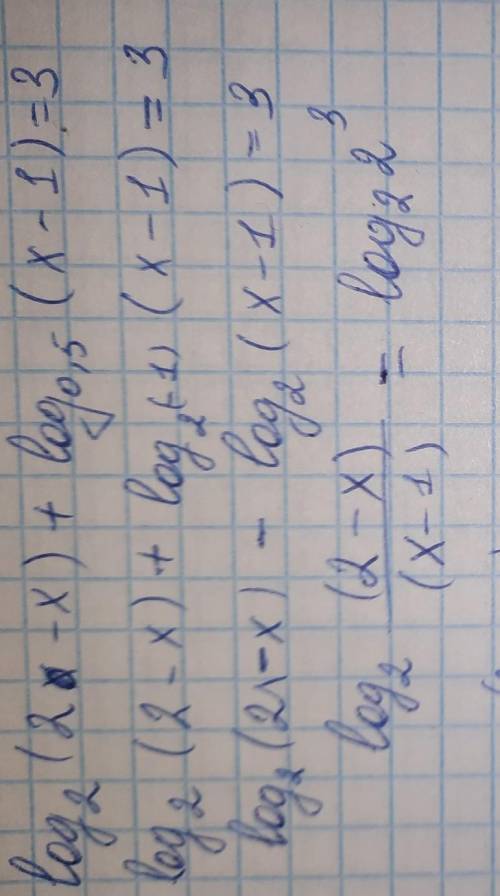 log₂ (2 - x) + log₀,₅ (x - 1) = 3
log₂ (2 - x) + log₂(-1) (x - 1) = 3
log₂ (2 - x) - log₂ (x - 1) = 3
log₂ (2 - x)/(x - 1) = log₂ 2³